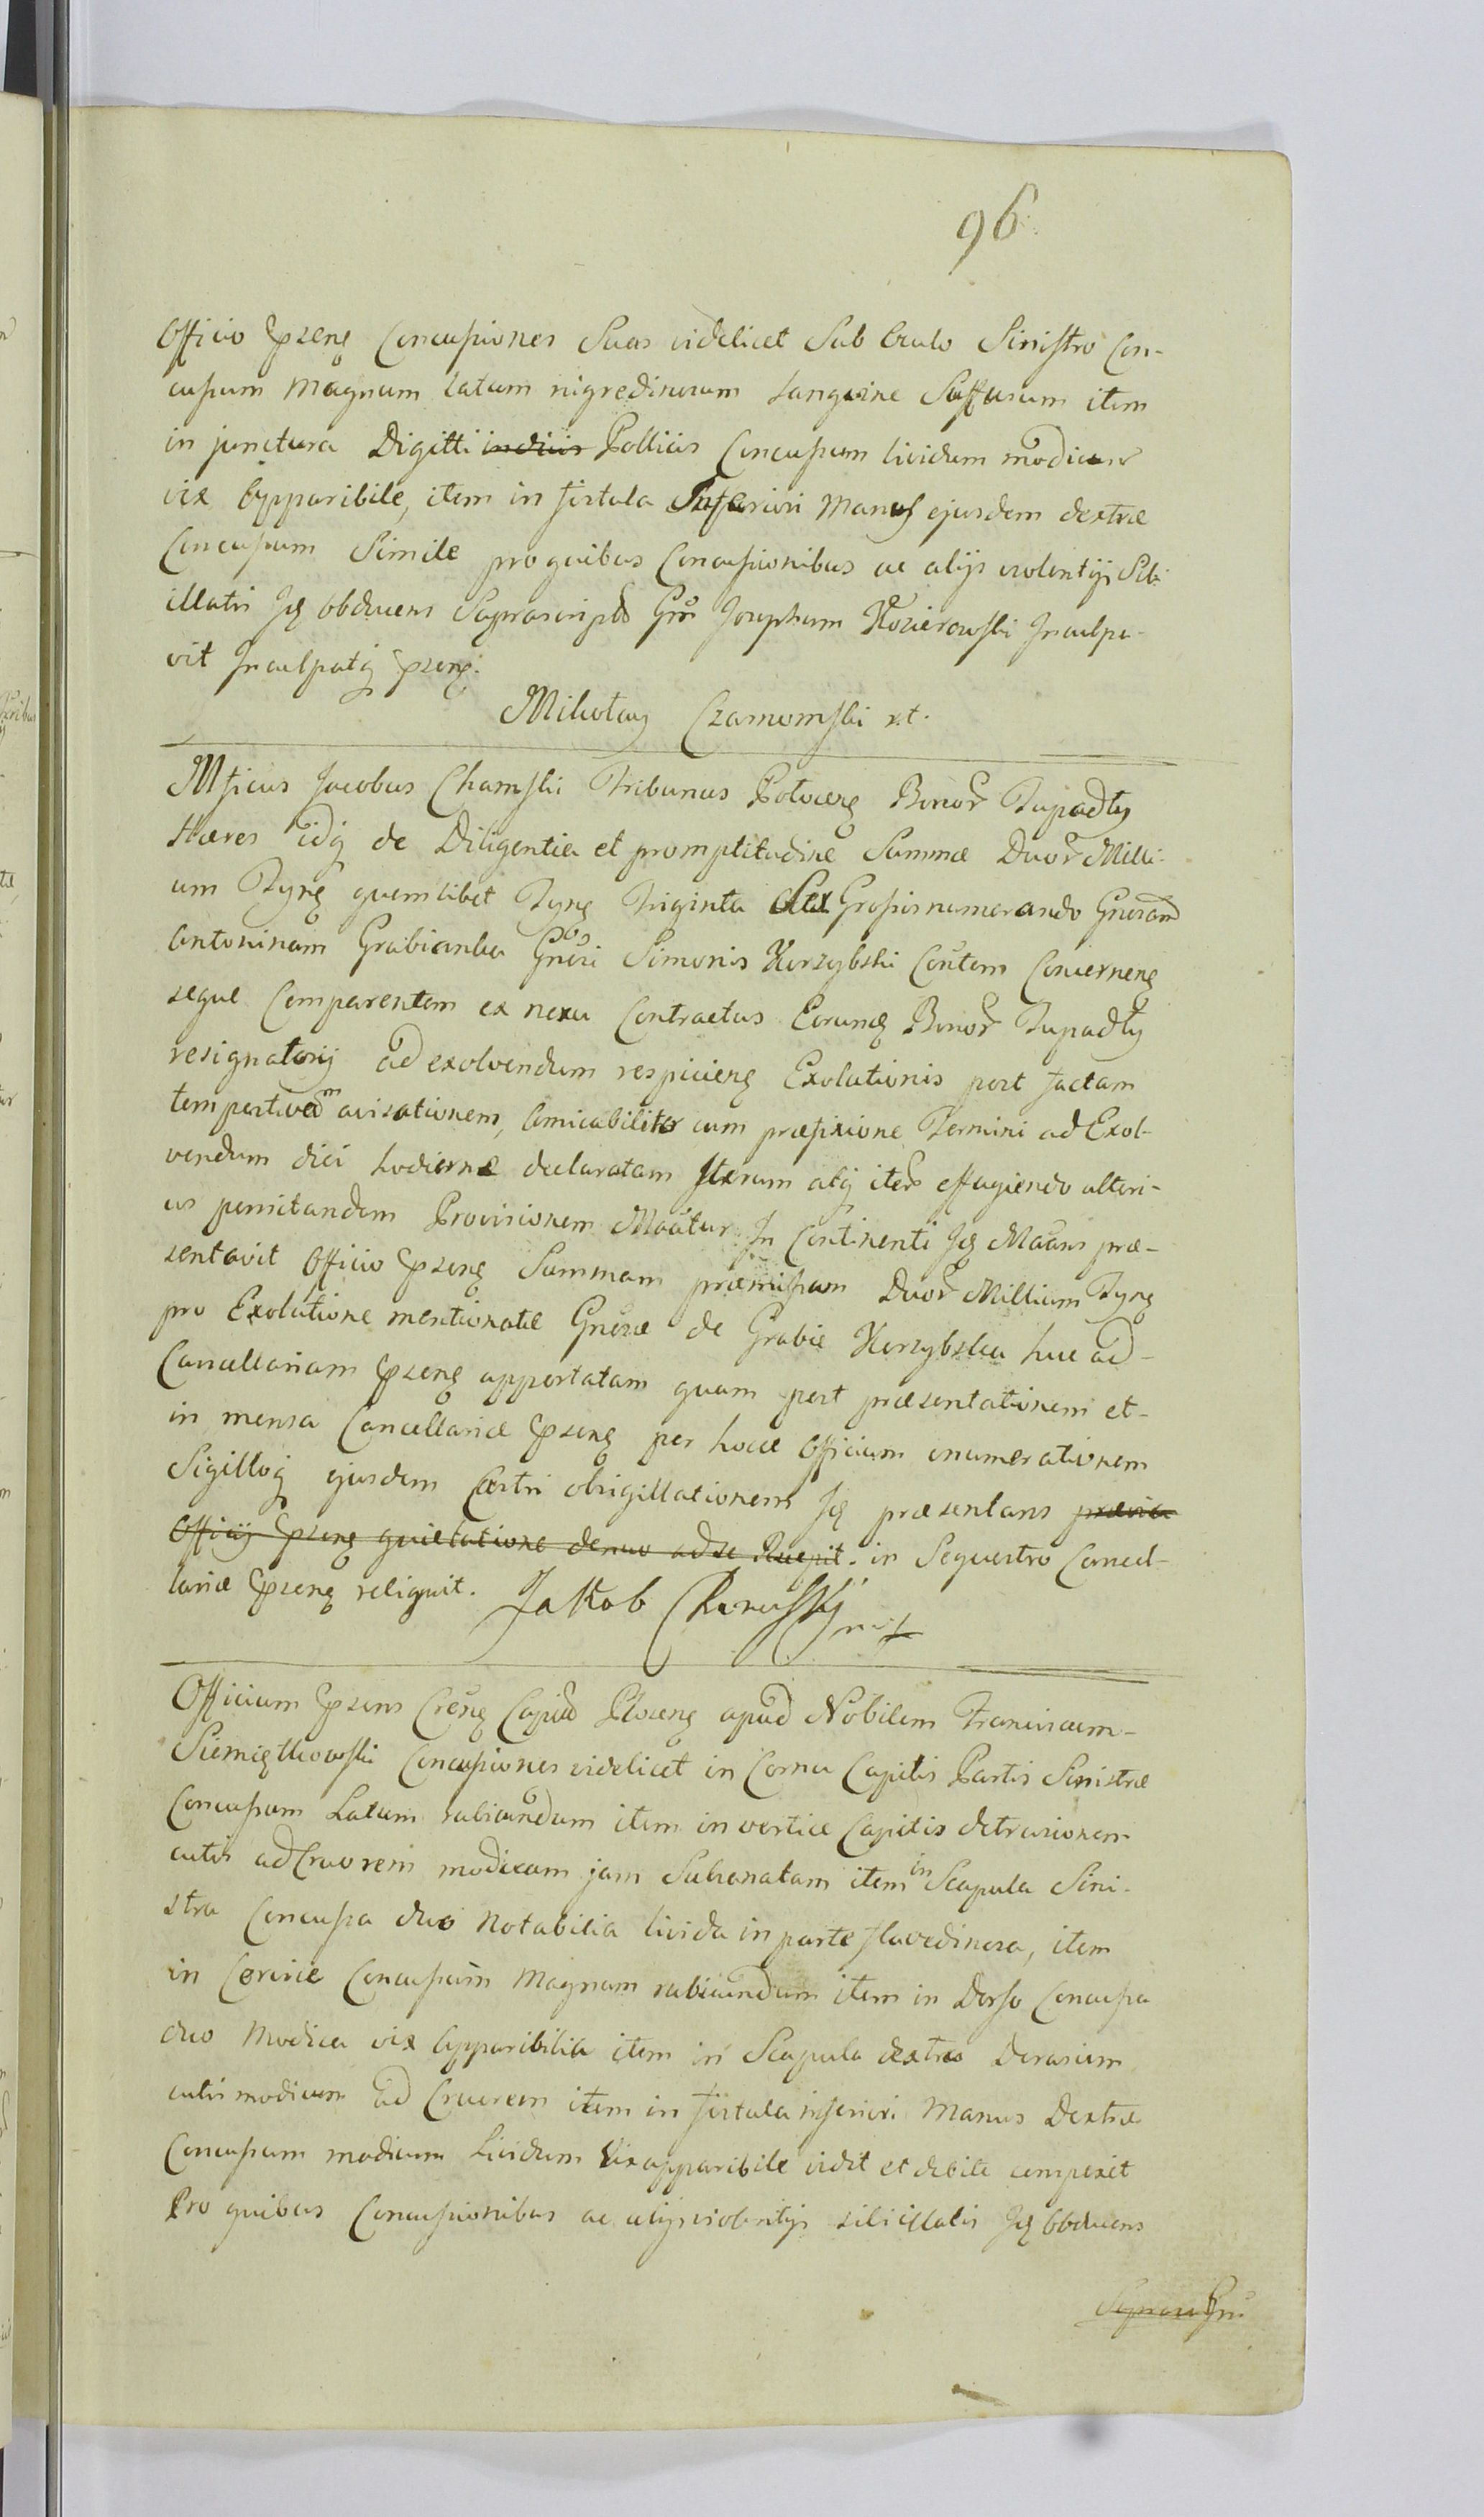 96.
Officio Pszeng Concussiones Suas videlicet Sub Oculo Sinistro Con-
cussum magnum latum nigredinosum sanguine Suffusum item
in junctura Digitti indicis Pollicis Concussum lividum modicum
vix Apparibile, item in fistula Inferiori manus ejusdem dextræ
Concussum Simile pro quibus Concussionibus ac alijs violentijs Sibi
illatis Jdq obducens Suprascriptū Gm Josephum Kozierowski Jnculpa-
vit Jnculpatq pszeng.
Mikołay Czarnomski rt.
Mficus Jacobus Chamski Tribunus Płoceng Bonor Tupadły
Hæres idq de Diligentia et promptitudine Summæ Duor Milli-
um Tynf quemlibet Tynf Triginta Octo Grossis numerando Gnosam
Antoninam Grabianka Gnosi Simonis Karzybski Coutem Concerneng
seque Comparentem ex nexu Contractus Eorund Bonor Tupadły
resignatorij ad exolvendum respicieng Exolutionis post factam
tempestivam avisationem, Amicabiliter cum præfixione Termini ad Exol-
vendum diei hodiernæ declaratam Iterum atq iter effugiendo ulteri-
us pensitandam Provisionem Maātur In Continenti Jdq Maāns præ-
sentavit Officio pszeng Summam præmissam Duor Millium Tynf
pro Exolutione mentionatæ Gnosæ de Grabie Karzybska huc ad-
Cancellariam pszeng apportatam quam post præsentationem et-
in mensa Cancellariæ pszeng per hocce Officium enumerationem
Sigilloq ejusdem Castri obsigillationem Jdq præsentans prævia
Officij pszeng quietatione denuo ad se Recepit. in Sequestro Cancel-
lariæ pszeng reliquit. Jakob Chamsky mp
Officium pszens Creng Capiū Płoceng apud Nobilem Franciscum-
Siemiątkowski Concussiones videlicet in Cornu Capitis Partis Sinistræ
Concussum Latum rubicundum item in vertice Capitis detrusionem
cutis ad Cruorem modicam jam Subsanatam item in Scapula Sini-
stra Concussa duo notabilia livida in parte flavedinosa, item
in Cervice Concussum magnum rubicundum item in Dorso Concussa
duo modica vix Apparibilia item in Scapula dextra Derasium
cutis modicum ad Cruorem item in fistula inferiori Manus Dextræ
Concussum modicum Lividum Vix apparibile vidit et debite conspexit
Pro quibus Concussionibus ac alijs violentijs sibi illatis Jdq Obducens